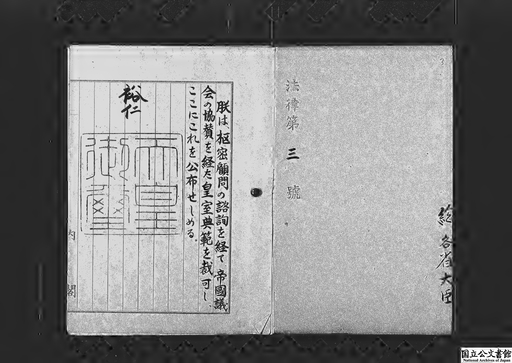 法律第三號
総各省大臣
朕は、枢密顧問の諮詢を経て、帝國議
会の協賛を経た皇室典範を裁可し、
ここにこれを公布せしめる。
裕仁
天皇
御璽
内閣
国立公文書館
National Archives of Japan